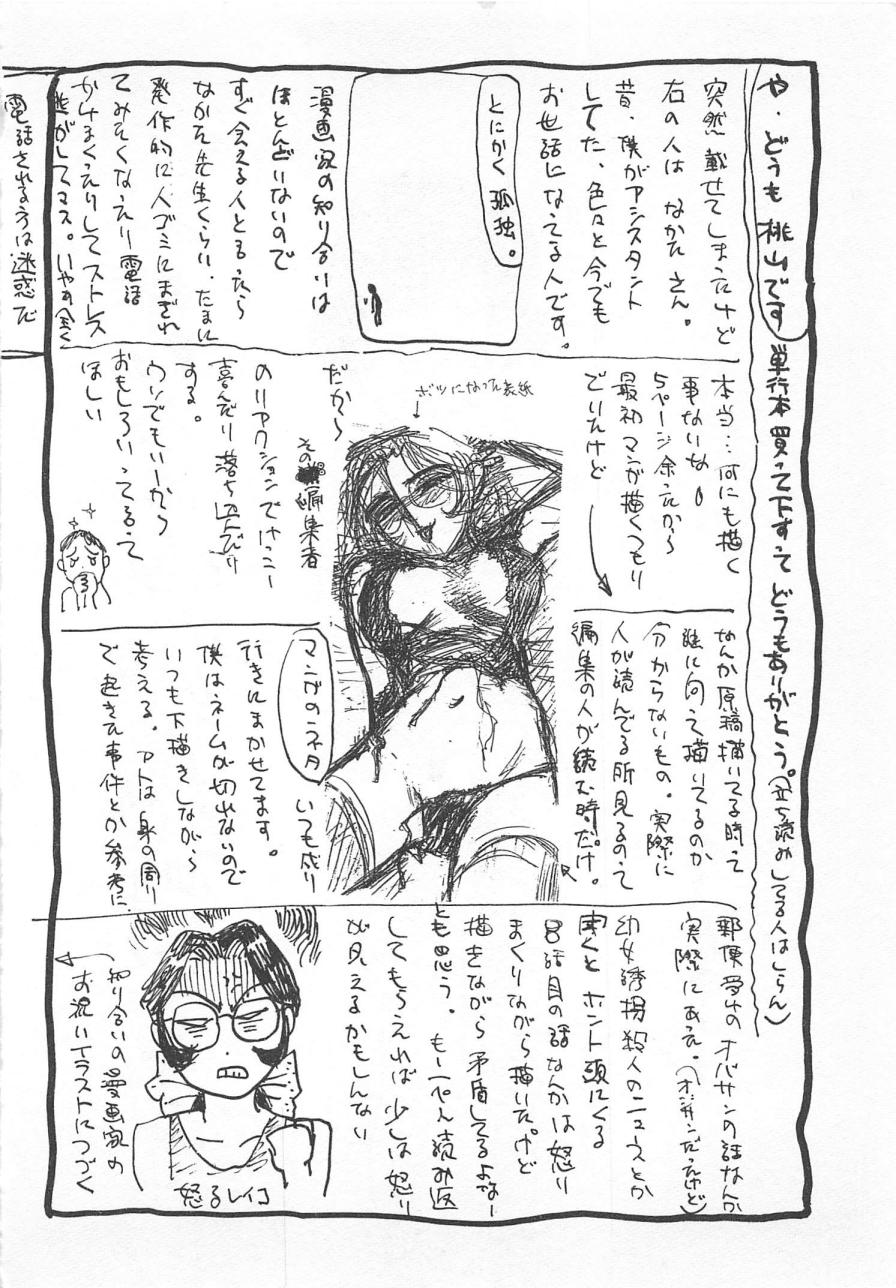 や・どうも桃山です 単行本買って下すってどうもありがとう。(立ち読みしてる人はしらん)
突然載せてしまったけど
右の人はなかた さん。
昔、僕がアシスタント
してた、色々と今でも
お世話になってる人です。
とにかく孤独。
漫画家の知り合いは
ほとんどいないので
すぐ会える人といったら
なかた先生くらい、たまに
発作的に人ゴミにまぎれ
てみたくなったり電話
かけまくったりしてストレス
逃がしてマス。いや全く
電話される方は迷惑だ
本当…何にも描く
事ないな
5ページ余ったから
最初マンガ描くつもり
でいたけど
なんか原稿描いてる時って
誰に向って描いてるのか
分からないもの。実際に
人が読んでる所見るのって
編集の人が読む時だけ。
ボツになった表紙
だから
その編集者
のリアクションでけっこー
喜んだり落ち込んだり
する。
ウソでもいーから
おもしろいってゆって
ほしい
マンガのネタ
いつも成り
行きにまかせてます。
僕はネームが切れないので
いつも下描きしながら
考える。アトは身の周り
で起きた事件とか参考に
郵便受けのオバサンの話なんか
実際にあった。(オジサンだったけど)
幼女誘拐殺人のニュースとか
聞くとホント頭にくる
8話目の話なんかは怒り
まくりながら描いたけど
描きながら矛盾してるよなー
とも思う。もー一ぺん読み返
してもらえれば少しは怒り
が見えるかもしんない
怒るレイコ
知り合いの漫画家の
お祝いイラストにつづく